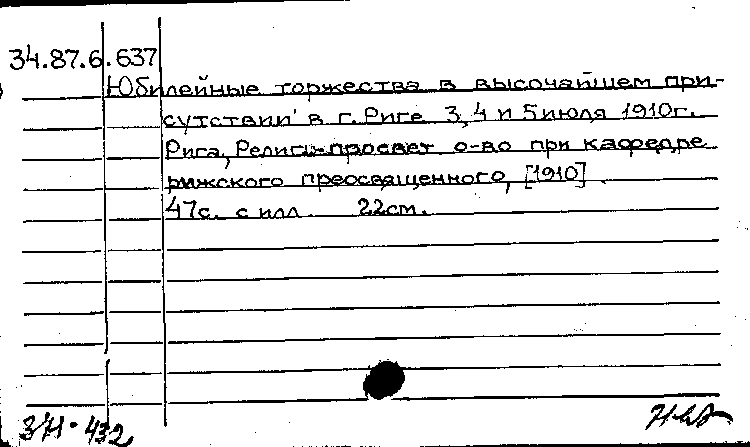 34.87.6.637
Юбилейные торжества в высочайшем при-
сутствии в г. Риге 3, 4 и 5 июля 1910г.
Рига, Религ-просвет о-во при кафедре
рижского преосвященного, [1910].
47с. с илл. 22см.